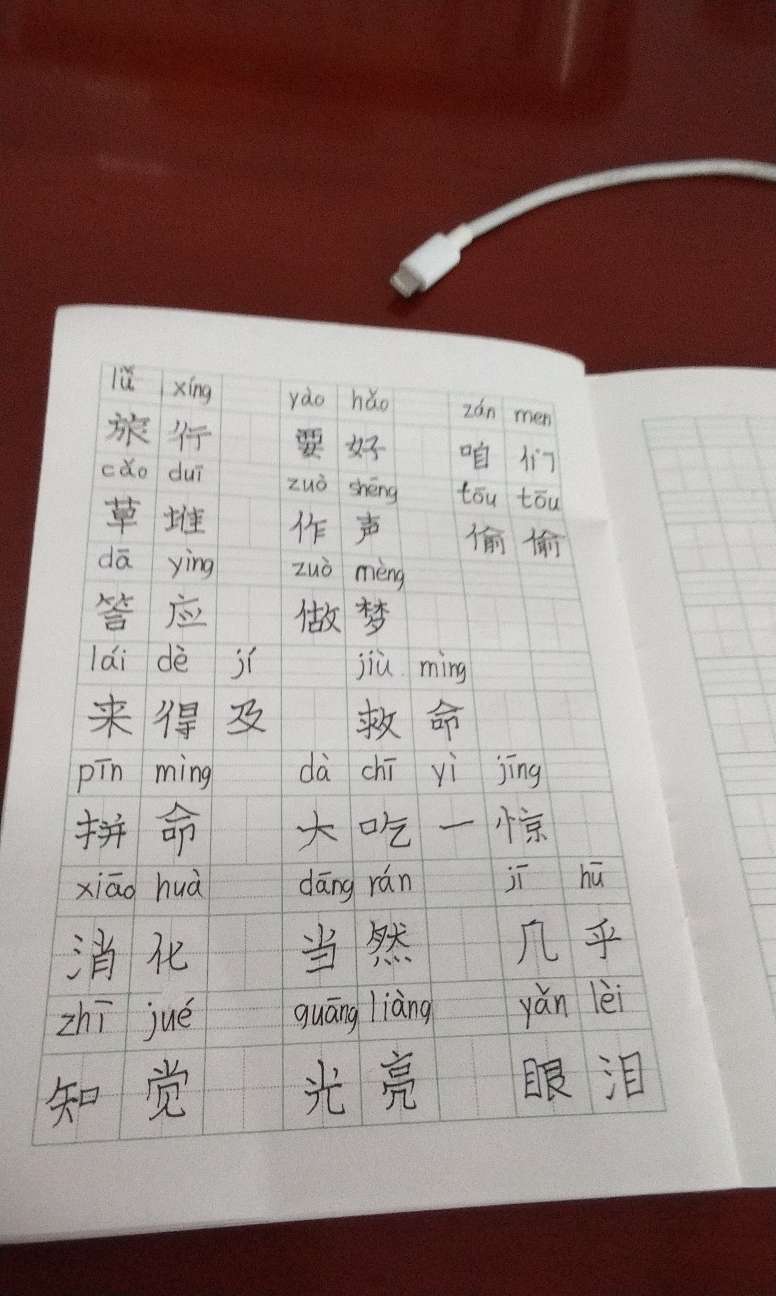 lǚ xíng yào hǎo zán men
旅行 要好 咱们
cǎo duī zuò shēng tōu tōu
草堆 作声 偷偷
dā yìng zuò mèng
答应 做梦
lái dè jí jiù mìng
来得及 救命
pīn mìng dà chī yì jīng
拼命 大吃一惊
xiāo huà dāng rán jī hū
消化 当然 几乎
zhī jué guāng liàng yǎn lèi
知觉 光亮 眼泪